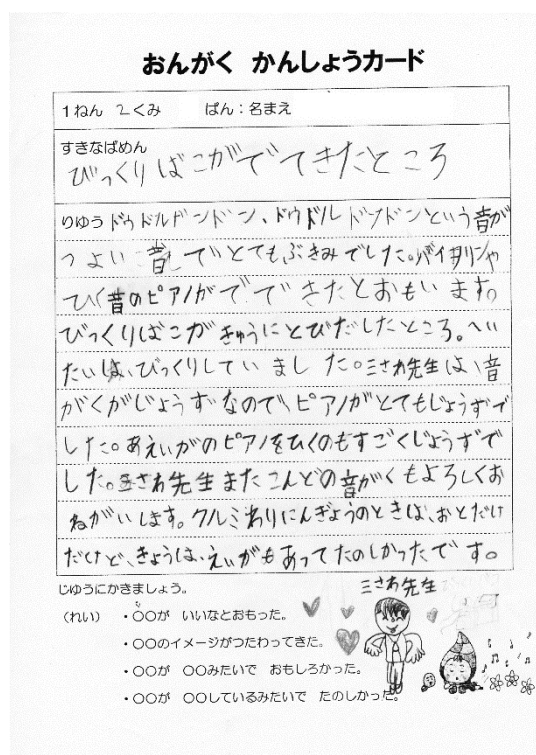 おんがく かんしょうカード
1ねん 2くみ ばん：名まえ
すきなばめん
びっくりばこがでてきたところ
りゆう ドゥドルドンドン、ドゥドルドンドンという音が
つよい音しでとてもぶきみでした。バイオリンや
ひく音のピアノがでできたとおもいます。
びっくりばこがきゅうにとびだしたところ。へい
たいは、びっくりしていました。三さわ先生は、音
がくがじょうずなので、ピアノがとてもじょうずで
した。あえいがのピアノをひくのもすごくじょうずで
した。三さわ先生またこんどの音がくもよろしくお
ねがいします。クルミわりにんぎょうのときは、おとだけ
だけど、きょうは、えいがもあってたのしかったです。
じゆうにかきましょう。
三さわ先生
（れい） ・○○が いいなとおもった。
・○○のイメージがつたわってきた。
・○○が ○○みたいで おもしろかった。
・○○が ○○しているみたいで たのしかった。